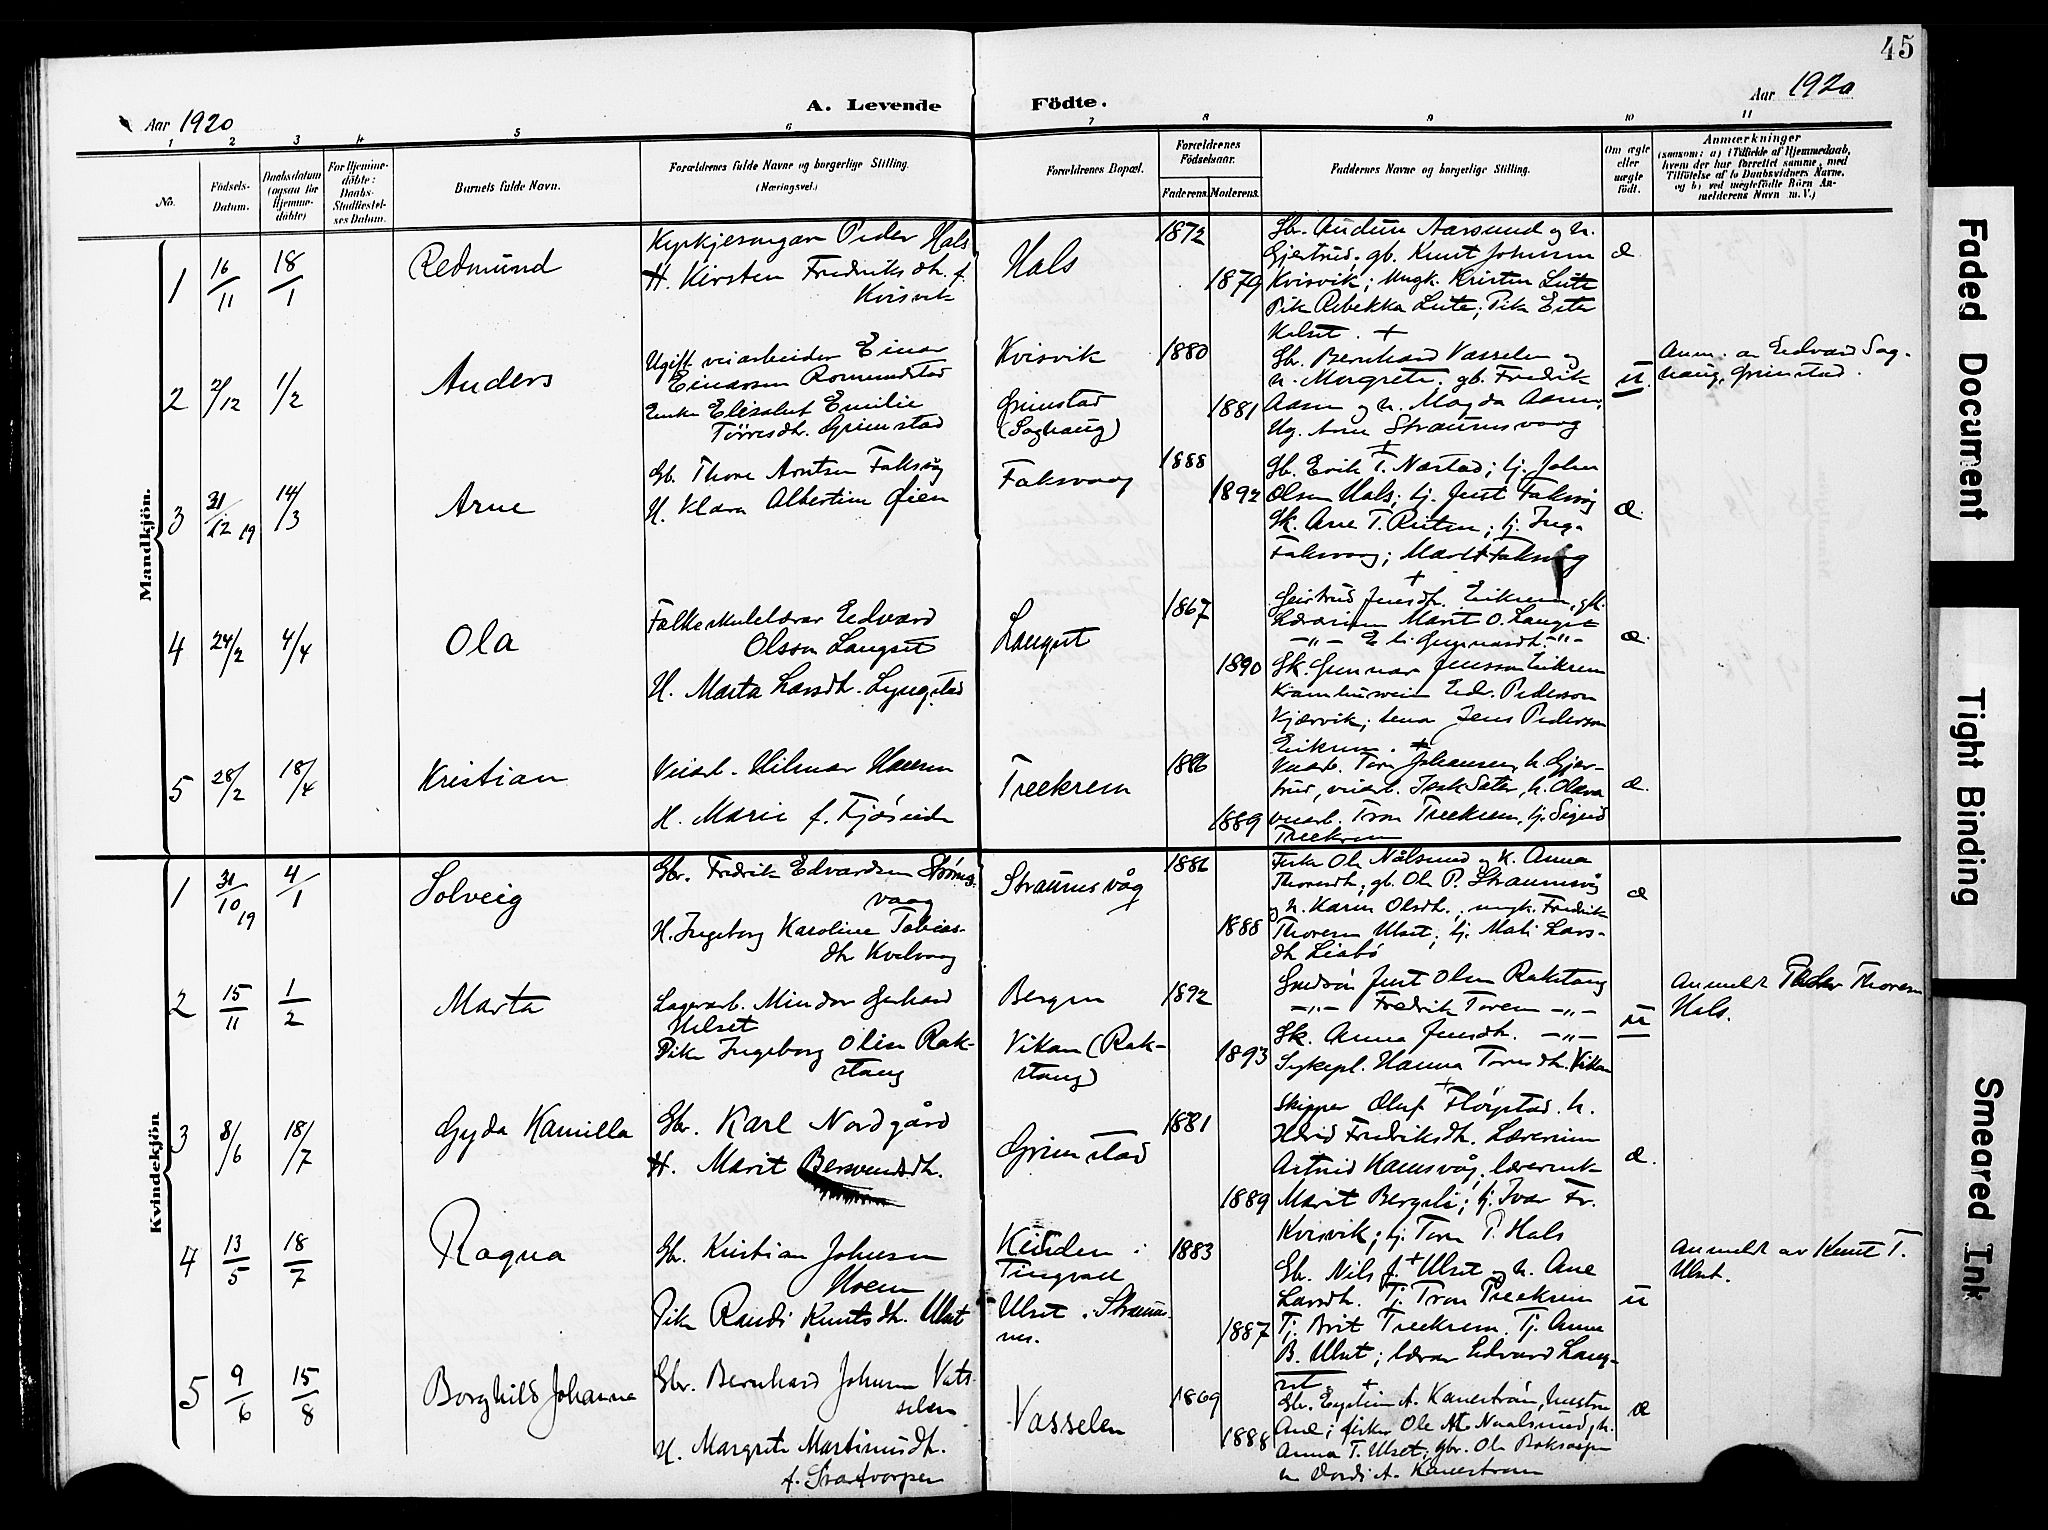 45
Aar 1920
A. Levende Födte.
Aar 1920
1 2 3 4 5 6 7 8 9 10 11
No.
Födsels-Datum.
Daabsdatum (ogsaa for Hjemme-döbte)
For Hjemme-döbte: Daabs-Stadfæstelses Datum.
Barnets fulde Navn.
Forældrenes fulde Navne og borgerlige Stilling.
(Næringsvei.)
Forældrenes Bopæl.
Forældrenes Födselsaar.
Faderens. Moderens.
Faddernes Navne og borgerlige Stilling.
Om ægte eller uægte födt.
Anmærkninger
(saasom: a) i Tilfælde af Hjemmedaab,
hvem der har forrettet samme, med
Tilföielse af to Daabsvidners Navne,
og b) ved uægtefödte Börn An-
melderens Navn m. V.)
Mandkjön.
1 16/11 18/1 Redmund
Kyrkjesongar Peder Hals
H. Kirsten Fredriksdh. f.
Kvisvik
Hals
1872
1879
Gbr. Audun Aarsund og h.
Gjertrud; gb. Knut Johnsen
Kvisvik; Ungk. Kristen Lute
Pik Rebekka Lute; Pik Ester
Halset. +
æ.
2 2/12 1/2 Anders
Ugift veiarbeider Einar
Einarsen Romundstad
Enke Elisabet Emilie
Törresdh. Grimstad
Kvisvik
Grimstad
(Soghaug)
1880
1881
Gb. Bernhard Vasselen og
h. Margrete; gb. Fredrik
Aasen og h. Magda Aasen;
Ug. Arne Straumsvaag
+
u.
Anm. av Edvard Sog-
haug, Grimstad.
3 31/12 19 14/3 Arne
Gb. Thore Arntsen Faksvåg
H. Klara Albertine Øien
Faksvaag
1888
1892
Gb. Erik T. Næstad; tj. John
Olsen Hals; tj. Just Faksvåg
Sk. Ane T. Reiten; tj. Inga
Faksvaag; Marit Faksvåg
+
æ.
4 24/2 4/4 Ola
Folkeskulelærar Edvard
Olsson Langset
H. Marta Larsdh. Lyngstad
Langset
1867
1890
Gjertrud Jensdh. Eikrem, gk.
Lærarinn Marit O. Langset
—„— E. li. Gunnarsdh. —„—
Sk. Gunnar Jensson Eikrem
Kramhussvein Edv. Pederson
Kjærvik; tena Jens Pederson
Eikrem. +
æ.
5 28/2 18/4 Kristian
Veiarb. Hilmar Hansen
H. Marie f. Fjøseide
Treekrem
1886
1889
Veiarb. Tore Johansen, h. Gjer-
trud, veiarb. Isak Sæter, h. Olava
veiarb. Tron Treekrem, tj. Sigrid
Treekrem
æ.
Kvindekjön
1 31/10 19 4/1 Solveig
Gbr. Fredrik Edvardsen Strøms-
vaag
H. Ingeborg Karoline Tobias-
dh Kvalvaag
Straumsvåg
1886
1888
Fisk. Ole Nålsund og h. Anna
Thoresdh; gb. Ole P. Straumsvåg
og h. Karen Olsdh.; ungk. Fredrik
Thoresen Ulset; tj. Mali Lars-
dh Liabø
æ
2 15/11 1/2 Marta
Lagerarb. Mindor Gerhard
Helset
Pike Ingeborg Oline Rak-
stang
Bergen
Vikan (Rak-
stang)
1892
1893
Gardsön Just Olsen Rakstang
—„— Fredrik Toresen —„—
Sk. Anna Jensdh. —„—
Sykepl. Hanna Toresdh. Vikan
+
u
Anmeldt Peder Thoresen
Hals.
3 8/6 18/7 Gyda Kamilla
Gbr. Karl Nordgård
H. Marit Berentsdh.
Grimstad
1881
1889
Skipper Oluf Fløystad. h.
Hilrid Fredriksdh. Lærerinne
Astrid Hansvåg; lærerinne
Marit Bergsli; tj. Ivar Fr.
Kvisvik; tj. Tore P. Hals
+
æ.
4 13/5 18/7 Ragna
Gbr. Kristian Johnsen
Moen
Pike Randi Knutsdh. Ulset
Kinden i
Tingvoll
Ulset. Straums-
nes.
1883
1887
Gbr. Nils J. Ulset og h. Ane
Larsdh. Tj. Tron Treekrem
Tj. Brit Treekrem. Tj. Anna
B. Ulset; lærar Edvard Lang-
set +
u
Anmeldt av Knut T.
Ulset.
5 9/6 15/8 Borghild Johanna
Gbr. Bernhard Johnsen Vats-
selen
H. Margrete Martinusdh.
f. Svartvarpen
Vasselen
1869
1888
Gbr. Eystein A. Kanestrøm, hustru
Ane; fisker Ole M. Naalsund, h.
Anna T. Ulset; gbr. Ole
Dordi A. Kanestrøm
æ
Faded Document
Tight Binding
Smeared Ink